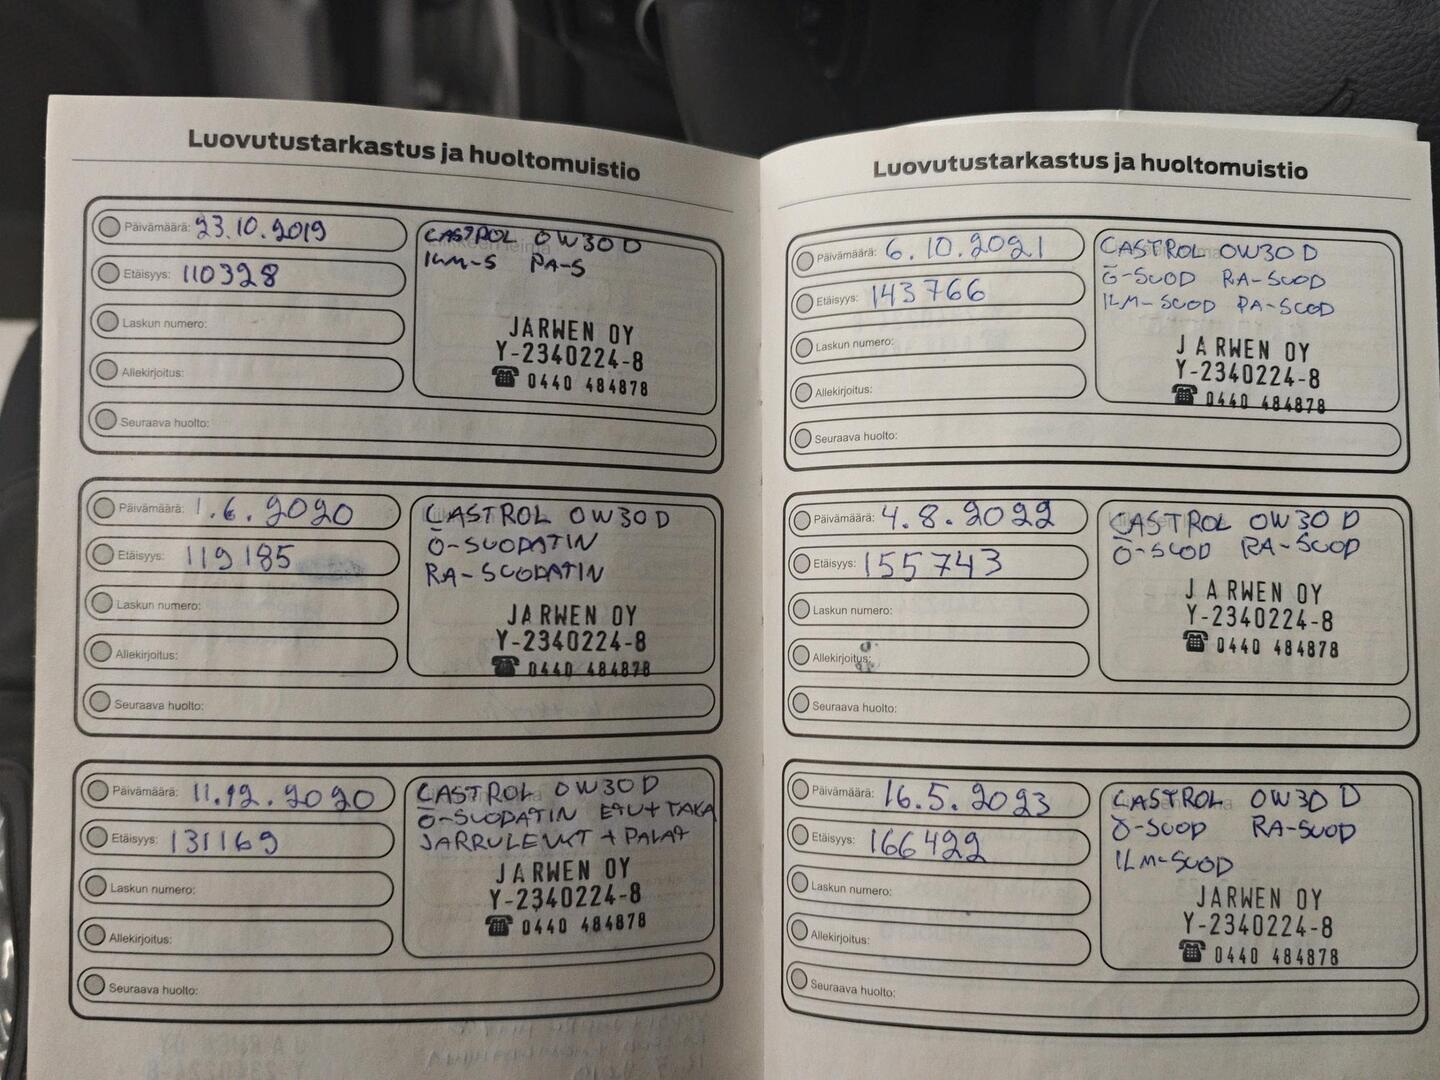 Luovutustarkastus ja huoltomuistio
Päivämäärä: 23.10.2019
Etäisyys: 110328
Laskun numero:
Allekirjoitus:
Seuraava huolto:
CASTROL 0W30D
ILM-S PA-S
JARWEN OY
Y-2340224-8
☎ 0440 484878
Päivämäärä: 1.6.2020
Etäisyys: 119185
Laskun numero:
Allekirjoitus:
Seuraava huolto:
CASTROL 0W30D
Ö-SUODATIN
RA-SUODATIN
JARWEN OY
Y-2340224-8
☎ 0440 484878
Päivämäärä: 11.12.2020
Etäisyys: 131169
Laskun numero:
Allekirjoitus:
Seuraava huolto:
CASTROL 0W30D
Ö-SUODATIN ETU+TAKA
JARRULEVYT + PALAT
JARWEN OY
Y-2340224-8
☎ 0440 484878
Luovutustarkastus ja huoltomuistio
Päivämäärä: 6.10.2021
Etäisyys: 143766
Laskun numero:
Allekirjoitus:
Seuraava huolto:
CASTROL 0W30D
Ö-SUOD RA-SUOD
ILM-SUOD PA-SUOD
JARWEN OY
Y-2340224-8
☎ 0440 484878
Päivämäärä: 4.8.2022
Etäisyys: 155743
Laskun numero:
Allekirjoitus:
Seuraava huolto:
CASTROL 0W30D
Ö-SUOD RA-SUOD
JARWEN OY
Y-2340224-8
☎ 0440 484878
Päivämäärä: 16.5.2023
Etäisyys: 166422
Laskun numero:
Allekirjoitus:
Seuraava huolto:
CASTROL 0W30D
Ö-SUOD RA-SUOD
ILM-SUOD
JARWEN OY
Y-2340224-8
☎ 0440 484878